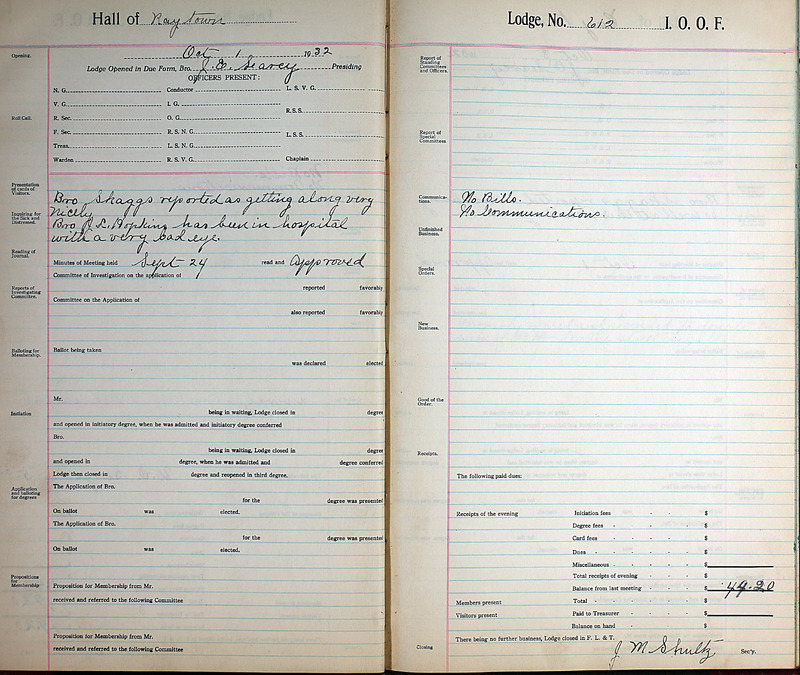 Hall of Raytown
Oct 1 1932
Opening.
Lodge Opened in Due Form, Bro. J. E. Searcy Presiding
OFFICERS PRESENT:
Roll Call.
N. G. Conductor L. S. V. G.
V. G. I. G. R. S. S.
R. Sec. O. G.
F. Sec. R. S. N. G. L. S. S.
Treas. L. S. N. G.
Warden R. S. V. G. Chaplain
Presentation of cards of Visitors.
Bro Skaggs reported as getting along very
Nicely
Inquiring for the Sick and Distressed.
Bro L. Hopkins has been in hospital
with a very bad eye.
Reading of Journal.
Minutes of Meeting held Sept 24 read and Approved
Committee of Investigation on the application of
Reports of Investigating Committee.
reported favorably
Committee on the Application of
also reported favorably
Balloting for Membership.
Ballot being taken
was declared elected
Mr.
Initiation
being in waiting, Lodge closed in degree
and opened in initiatory degree, when he was admitted and initiatory degree conferred
Bro.
being in waiting, Lodge closed in degree
and opened in degree, when he was admitted and degree conferred
Lodge then closed in degree and reopened in third degree.
Application and balloting for degrees
The Application of Bro.
for the degree was presented
On ballot was elected.
The Application of Bro.
for the degree was presented
On ballot was elected.
Propositions for Membership
Proposition for Membership from Mr.
received and referred to the following Committee
Proposition for Membership from Mr.
received and referred to the following Committee
Lodge, No. 612 I. O. O. F.
Report of Standing Committees and Officers.
Report of Special Committees
Communications.
No Bills.
No Communications.
Unfinished Business.
Special Orders.
New Business.
Good of the Order.
Receipts.
The following paid dues:
Receipts of the evening Initiation fees $
Degree fees $
Card fees $
Dues $
Miscellaneous $
Total receipts of evening $
Balance from last meeting $ 49.20
Members present Total $
Visitors present Paid to Treasurer $
Balance on hand $
There being no further business, Lodge closed in F. L. & T.
Closing
J M Shultz Sec'y.